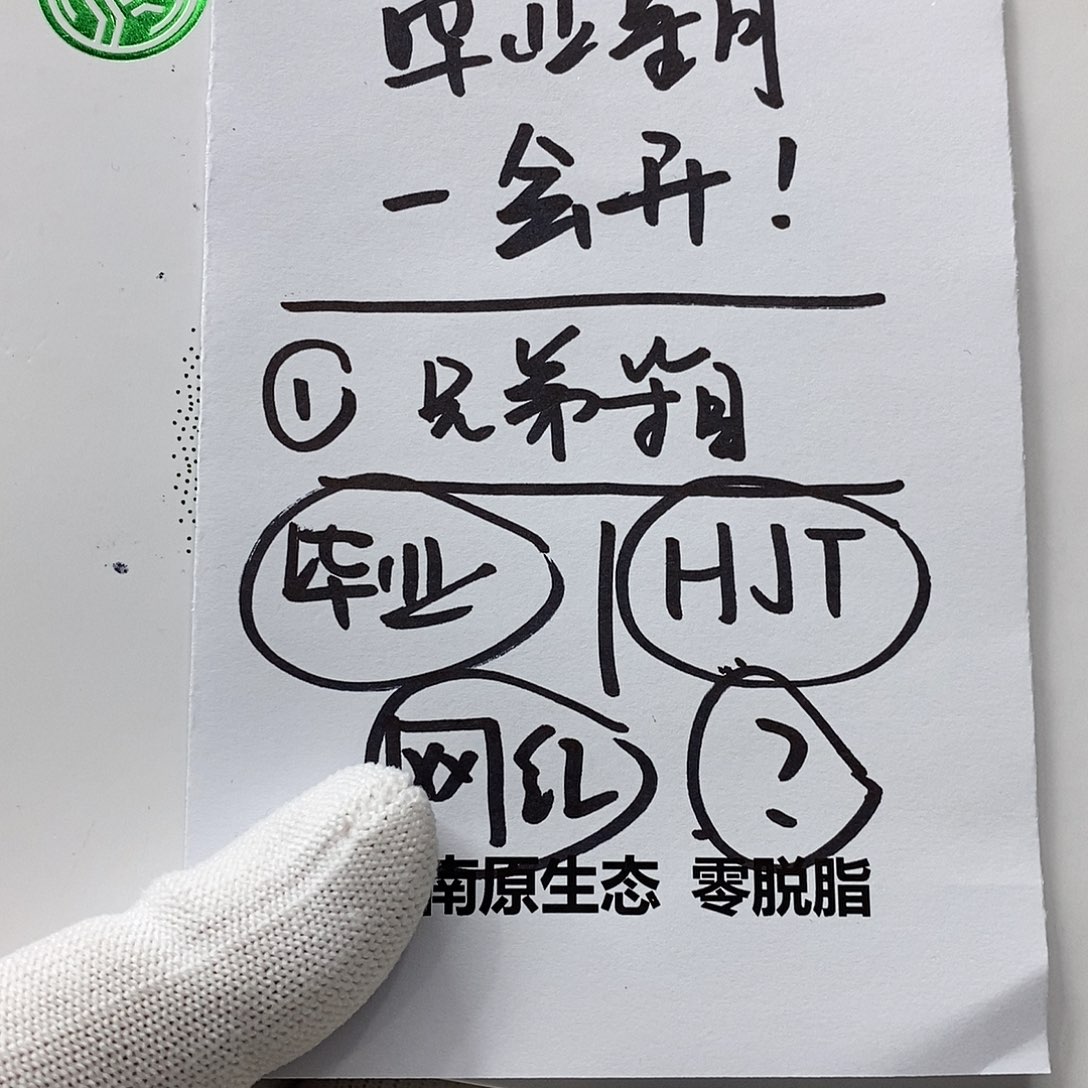 毕业箱
一会开！
① 兄弟箱
毕业 | HJT
网红 ?
南原生态 零脱脂